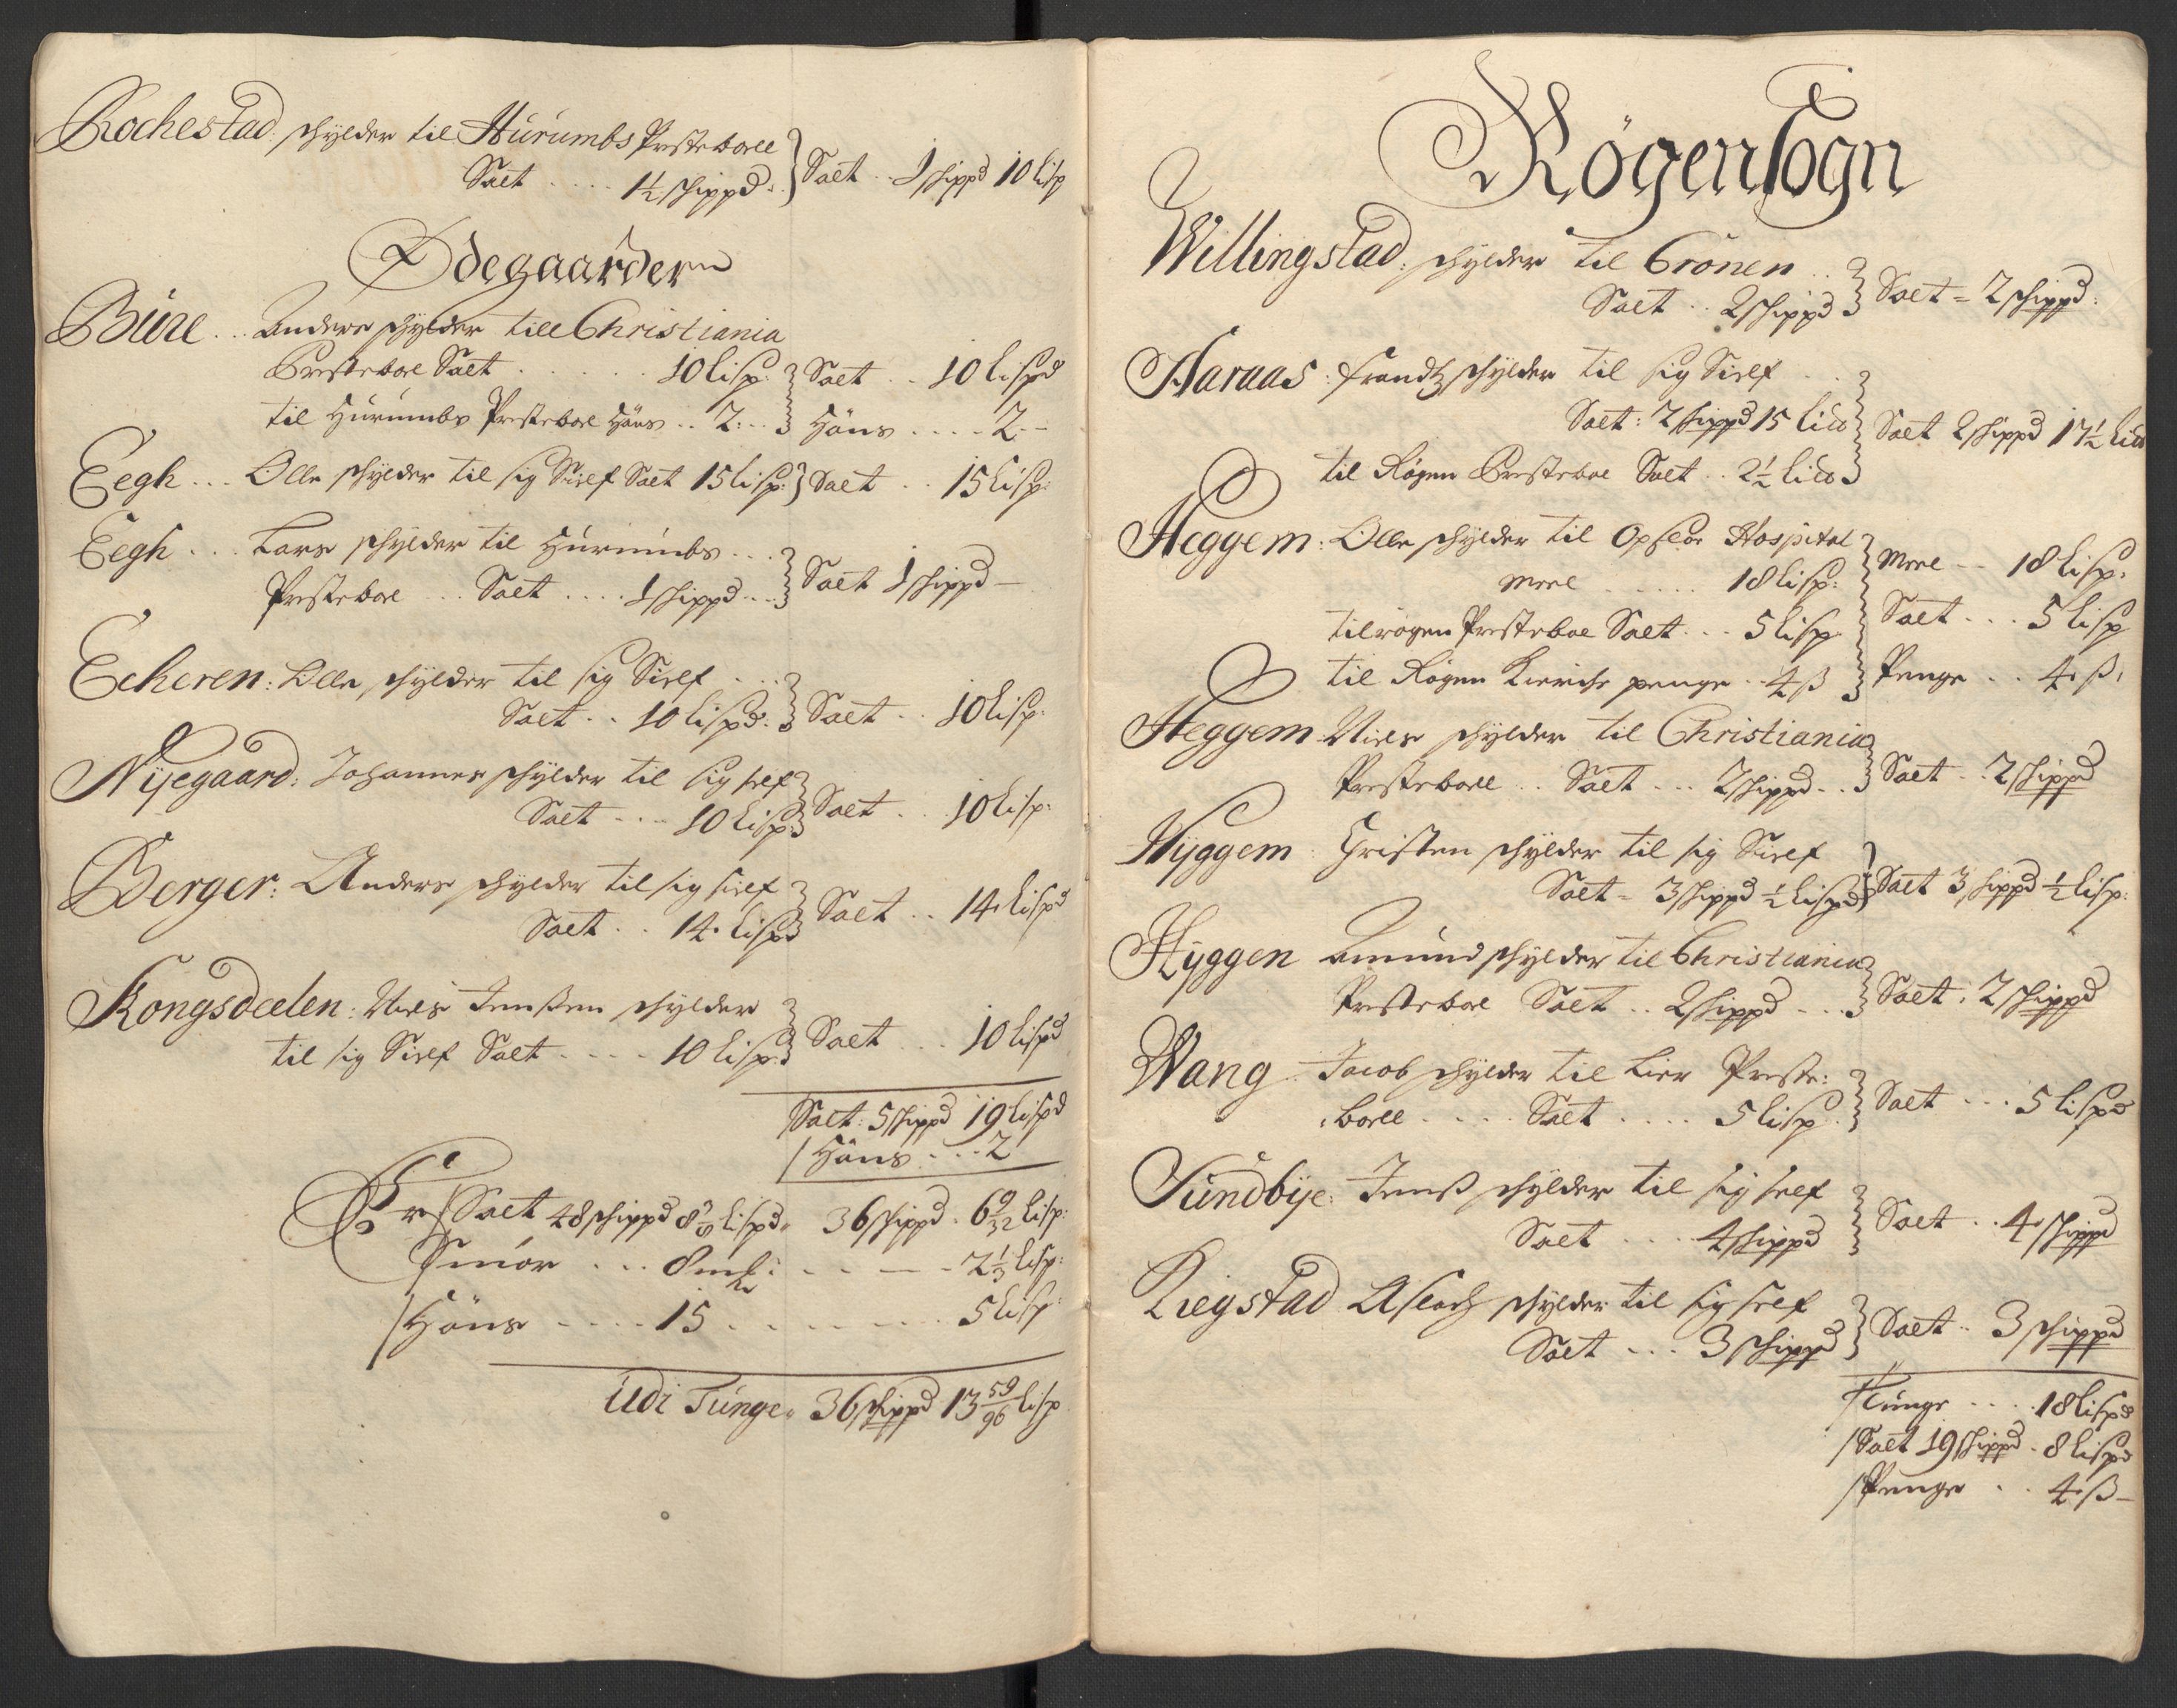 Rochestad: schylder til Hurumbs Presteboell
Salt .... 1½ schippd. } Salt .. 1 schippd 10 Lisp
Ødegaarder
Büre .. Anders schylder till Christiania
Presteboe Salt ..... 10 Lisp: } Salt .. 10 Lispd
til Hurumbs Presteboel Höns .. 2: .. } Höns .... 2 --
Eegh ... Olle schylder til sig Sielf Salt 15 Lisp: } Salt .. 15 Lisp:
Eegh ... Lars schylder til Hurumbs ...
Presteboel ... Salt .... 1 schippd ... } Salt 1 schippd —
Echeren: Olle schylder til sig Sielf ...
Salt .. 10 Lispd. } Salt .. 10 Lisp:
Nijegaard: Johannes schylder til sig self
Salt .... 10 Lisp: } Salt .. 10 Lisp:
Berger: Anders schylder til sig sielf
Salt .. 14 Lispd } Salt .. 14 Lispd
Kongsdeelen: Niels Jenssen schylder
til sig Sielf Salt .... 10 Lisp: } Salt ... 10 Lispd
Salt: 5 schippd 19 Lispd
Höns ... 2
Er Salt 48 schippd 8 Lispd. 36 schippd. 6 9/32 Lisp:
Smör ... 8 mk: .. — - 2⅓ Lisp:
Höns .... 15 ........ 5 Lisp
Udi Tunge. 36 schippd 13 59/96 Lisp
Røgen Sogn
Willingstad: schylder til Cronen ..
Salt .. 2 schippd } Salt = 2 schippd:
Haraas: Frandtz schylder til sig Sielf ..
Salt: 2 schippd 15 Lid } Salt 2 schippd 17½ Lid
til Røgen Presteboel Salt .. 2½ Lid
Heggem: Olle schylder til Opsloe Hospital
Meel ...... 18 Lisp: } Meel -- 18 Lisp:
til røgen Presteboe Salt ... 5 Lisp } Salt ... 5 Lisp
til Røgen Kierche penge .. 4 ß } Penge .. 4 ß,
Heggem Niels schylder til Christiania
Presteboell .. Salt ... 2 schippd .. } Salt .. 2 schippd
Hyggem: Christen schylder til sig Sielf
Salt = 3 schippd ½ Lispd } Salt 3 schippd ½ Lisp:
Hyggen Amund schylder til Christiania
Presteboel Salt .. 2 schippd ... } Salt. 2 schippd
Wang .. Jacob schylder til Lier Preste:
boell .... Salt .... 5 Lisp } Salt ... 5 Lispd
Sundbye: Jenß schylder til sig self
Salt ... 4 schippd } Salt .. 4 schippd
Riegstad Aslach schylder til sig self
Salt ... 3 schippd } Salt .. 3 schippd
Tunge .... 18 Lispd
Salt 19 schippd. 8 Lispd
Penge .. 4 ß —